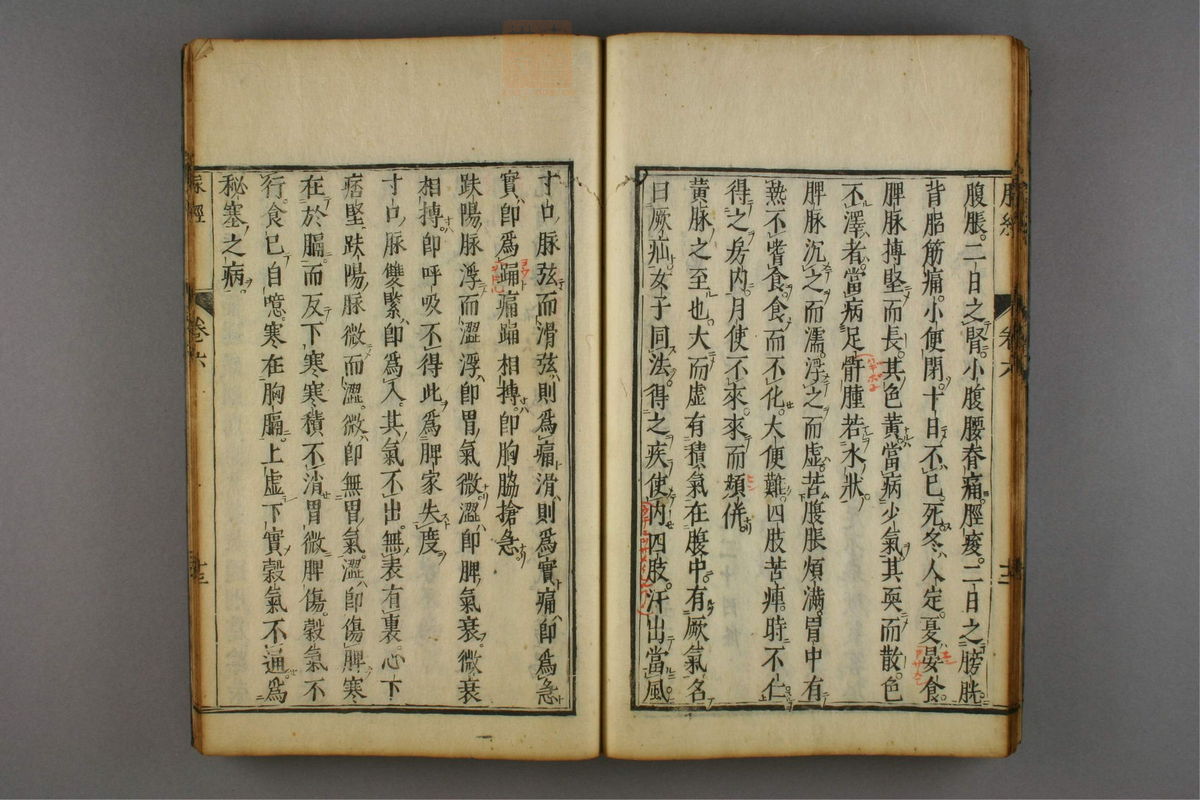 脉經
卷六
十二
腹脹二日之腎小腹腰脊痛脛痠二日之膀胱
背䏚筋痛小便閉十日不已死冬人定夏晏食
脾脉搏堅而長其色黄當病少氣其耎而散色
不澤者當病足骭腫若水狀
脾脉沉之而濡浮之而虚苦腹脹煩滿胃中有
熱不嗜食食而不化大便難四肢苦痺時不仁
得之房内月使不來來而頻併
黄脉之至也大而虚有積氣在腹中有厥氣名
曰厥疝女子同法得之疾使内四肢汗出當風
寸口脉弦而滑弦則爲痛滑則爲實痛即爲急
實即爲踊痛踊相搏即胸脇搶急
趺陽脉浮而澀浮即胃氣微澀即脾氣衰微衰
相搏即呼吸不得此爲脾家失度
寸口脉雙緊即爲入其氣不出無表有裏心下
痞堅趺陽脉微而澀微即無胃氣澀即傷脾寒
在於膈而反下寒寒積不消胃微脾傷穀氣不
行食已自噫寒在胸膈上虚下實穀氣不通爲
秘塞之病
脉經
卷六
十三